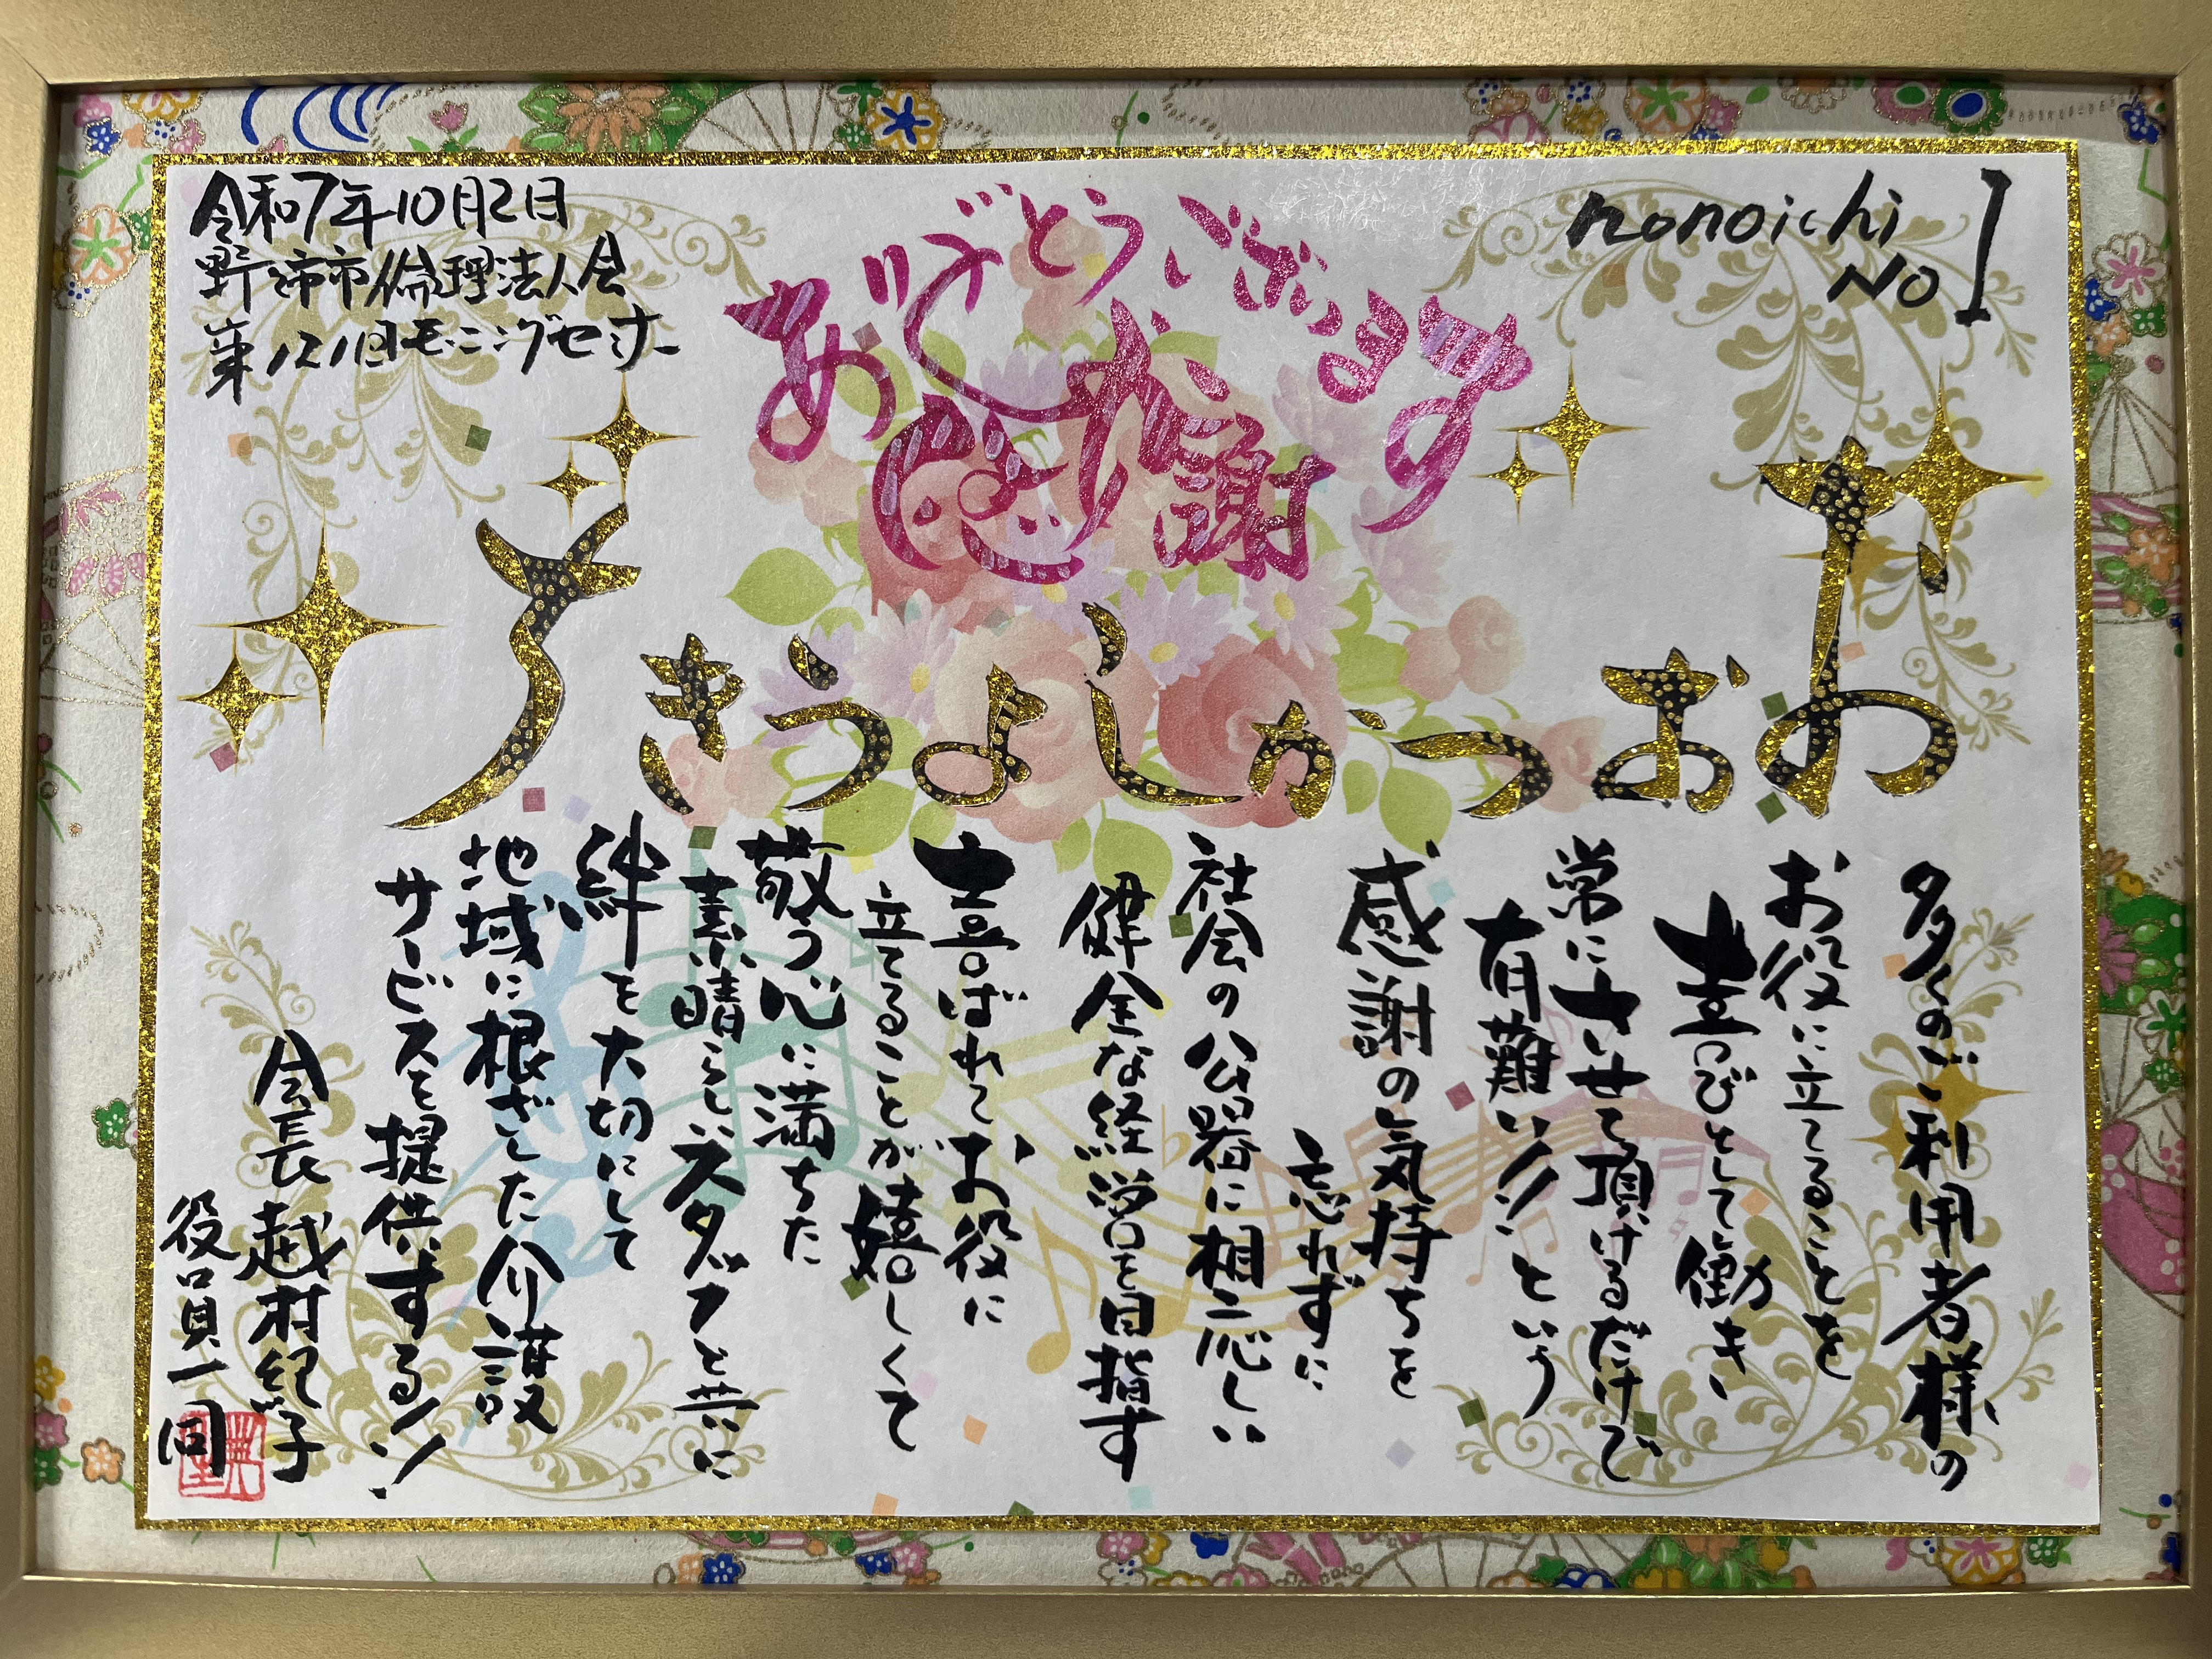 令和7年10月2日
野々市市倫理法人会
第121回モーニングセミナー
nonoichi
No 1
ありがとうございます
感謝
おおつかしようきち
多くのご利用者様の
お役に立てることを
喜びとして働き、
常にさせて頂けるだけで
有難い!!という
感謝の気持ちを
忘れずに
社会の公器に相応しい
健全な経営を目指す
喜ばれてお役に
立てることが嬉しくて
敬う心に満ちた
素晴らしいスタッフと共に
絆を大切にして
地域に根ざした介護
サービスを提供する!!
会長 越村紀子
役員一同